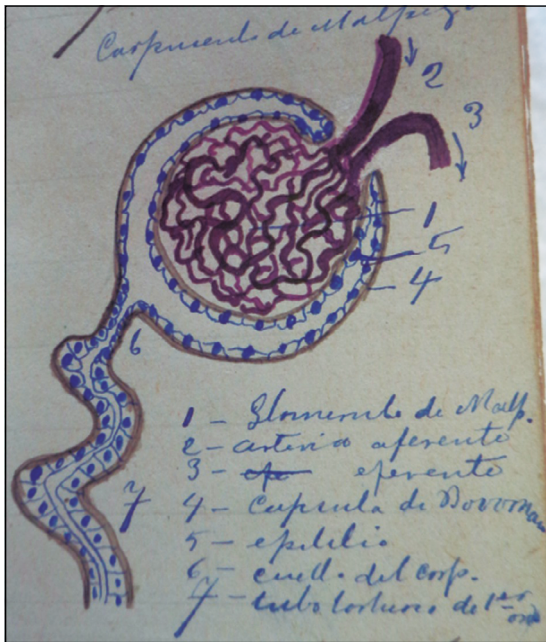 Corpusculo de Malpigi
2
3
1
5
4
6
7
1 - Glomerulo de Malp.
2 - arteria aferente
3 - eferente
4 - Capsula de Bowman
5 - epitelio
6 - cuello del corp.
7 - tubo tortuoso de 1er ord